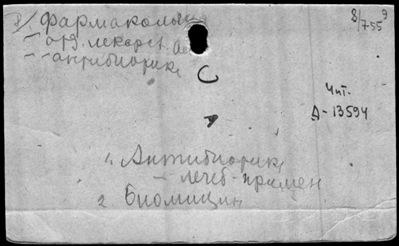 3/ фармаколог
8/755⁹
– отд. лекарст.
– антибиотик
С
Чит.
А-13594
А
1. Антибиотик,
– лечеб. примен
2 Биомицин